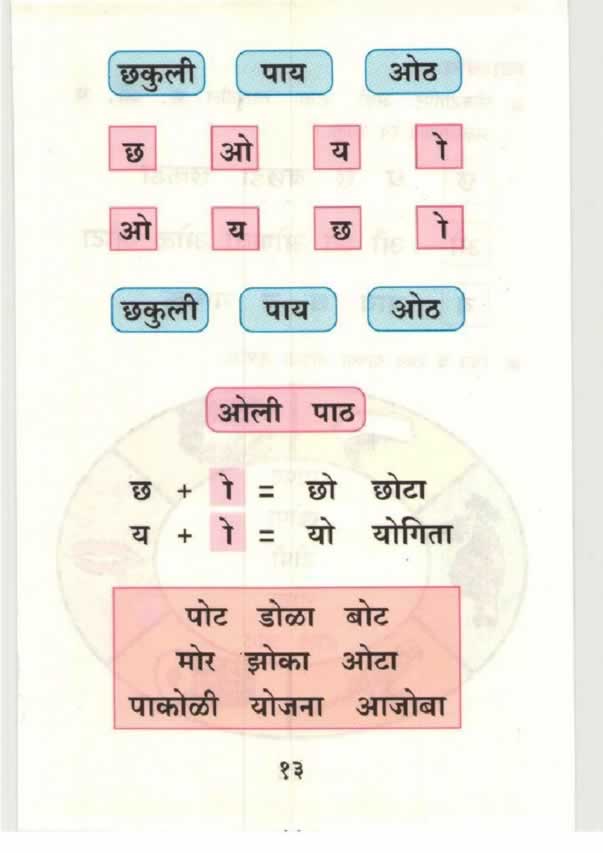 छकुली पाय ओठ
छ ओ य ो
ओ य छ ो
छकुली पाय ओठ
ओली पाठ
छ + ो = छो छोटा
य + ो = यो योगिता
पोट डोळा बोट
मोर झोका ओटा
पाकोळी योजना आजोबा
१३